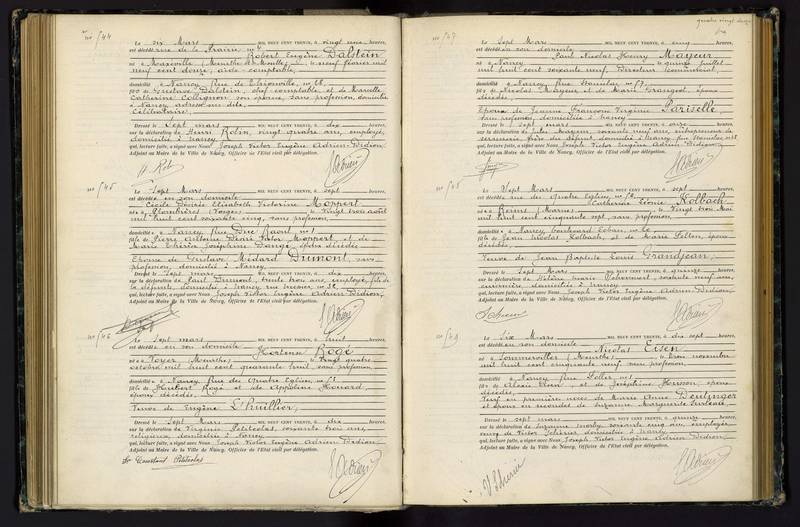 no 544
Le six Mars MIL NEUF CENT TRENTE, à vingt une heures,
est décédé rue de la Prairie no
Robert Eugène Dalstein
né à Maxéville (Meurthe et Moselle) le neuf février mil
neuf cent douze, aide comptable,
domicilié à Nancy, rue de Thionville, no 18,
fils de Gustave Dalstein, chef comptable, et de Marcelle
Catherine Collignon son épouse, sans profession, domiciliés
à Nancy, adresse sus dite
Célibataire
Dressé le sept mars MIL NEUF CENT TRENTE, à dix heures,
sur la déclaration de Henri Robin, vingt quatre ans, employé,
domicilié à Nancy
qui, lecture faite, a signé avec Nous Joseph Victor Eugène Adrien Didion,
Adjoint au Maire de la Ville de Nancy, Officier de l'État civil par délégation.
no 545
Le sept Mars MIL NEUF CENT TRENTE, à sept heures,
est décédée en son domicile
Cécile Denise Elisabeth Victorine Moppert
née à Plombières (Vosges) le vingt trois août
mil huit cent soixante cinq, sans profession,
domiciliée à Nancy, rue Raoul no 1
fille de Pierre Antoine Denis Victor Moppert, et de
Marie Thérèse Joséphine époux décédés
Epouse de Gustave Médard Dumont, sans
profession, domicilié à Nancy
Dressé le sept Mars MIL NEUF CENT TRENTE, à dix heures,
sur la déclaration de Paul Dumont, trente trois ans, employé, fils de
la défunte, domicilié à Nancy, rue
qui, lecture faite, a signé avec Nous Joseph Victor Eugène Adrien Didion,
Adjoint au Maire de la Ville de Nancy, Officier de l'État civil par délégation.
no 546
Le sept mars MIL NEUF CENT TRENTE, à huit heures,
est décédée en son domicile
Hortense Rogé
née à Voyer (Meurthe) le vingt quatre
octobre mil huit cent quarante huit, sans profession,
domiciliée à Nancy, Rue des Quatre Eglises, no 51
fille de Hubert Rogé et de Appoline Honard,
époux décédés.
Veuve de Eugène L'huillier,
Dressé le sept Mars MIL NEUF CENT TRENTE, à dix heures,
sur la déclaration de Virginie Petitcolas, soixante trois ans,
religieuse, domiciliée à Nancy
qui, lecture faite, a signé avec Nous Joseph Victor Eugène Adrien Didion,
Adjoint au Maire de la Ville de Nancy, Officier de l'État civil par délégation.
Sr Constant Petitcolas
quatre vingt
no 547
Le sept Mars MIL NEUF CENT TRENTE, à cinq heures,
est décédé en son domicile
Paul Nicolas Henry Mayeur
né à Nancy le quinze juillet
mil huit cent soixante neuf, Directeur commercial,
domicilié à Nancy, rue Stanislas no 57,
fils de Nicolas Mayeur, et de Marie Grangé, époux
décédés,
Epoux de Jeanne Françoise Virginie Pariselle
sans profession, domiciliée à Nancy
Dressé le sept mars MIL NEUF CENT TRENTE, à onze heures,
sur la déclaration de Jules Mayeur, soixante neuf ans, entrepreneur de
serrurerie, frère du défunt, domicilié à Nancy, rue Stanislas
qui, lecture faite, a signé avec Nous Joseph Victor Eugène Adrien Didion,
Adjoint au Maire de la Ville de Nancy, Officier de l'État civil par délégation.
no 548
Le Sept Mars MIL NEUF CENT TRENTE, à sept heures,
est décédée rue des Quatre Eglises, no
Catherine Léonie Kolbach
née à Reims (Marne) le vingt trois Mai
mil huit cent cinquante sept, sans profession,
domiciliée à Nancy, boulevard Lobau, no
fille de Jean Nicolas Kolbach, et de Marie Felten, époux
décédés,
Veuve de Jean Baptiste Louis Grandjean,
Dressé le sept Mars MIL NEUF CENT TRENTE, à quinze heures,
sur la déclaration de Marie soixante neuf ans,
domiciliée à Nancy
qui, lecture faite, a signé avec Nous Joseph Victor Eugène Adrien Didion,
Adjoint au Maire de la Ville de Nancy, Officier de l'État civil par délégation.
no 549
Le Six Mars MIL NEUF CENT TRENTE, à dix sept heures,
est décédé en son domicile
Nicolas Eisen
né à Sommerviller (Meurthe) le trois novembre
mil huit cent cinquante neuf, sans profession,
domicilié à Nancy, rue Keller no 1
fils de Alexis Eisen, et de Joséphine Herson, époux
décédés,
Veuf en première noces de Marie Anne Deutinger
et époux en secondes de Suzanne Marguerite
Dressé le sept mars MIL NEUF CENT TRENTE, à quinze heures,
sur la déclaration de Suzanne soixante cinq ans, employée,
domiciliée à Nancy
qui, lecture faite, a signé avec Nous Joseph Victor Eugène Adrien Didion,
Adjoint au Maire de la Ville de Nancy, Officier de l'État civil par délégation.